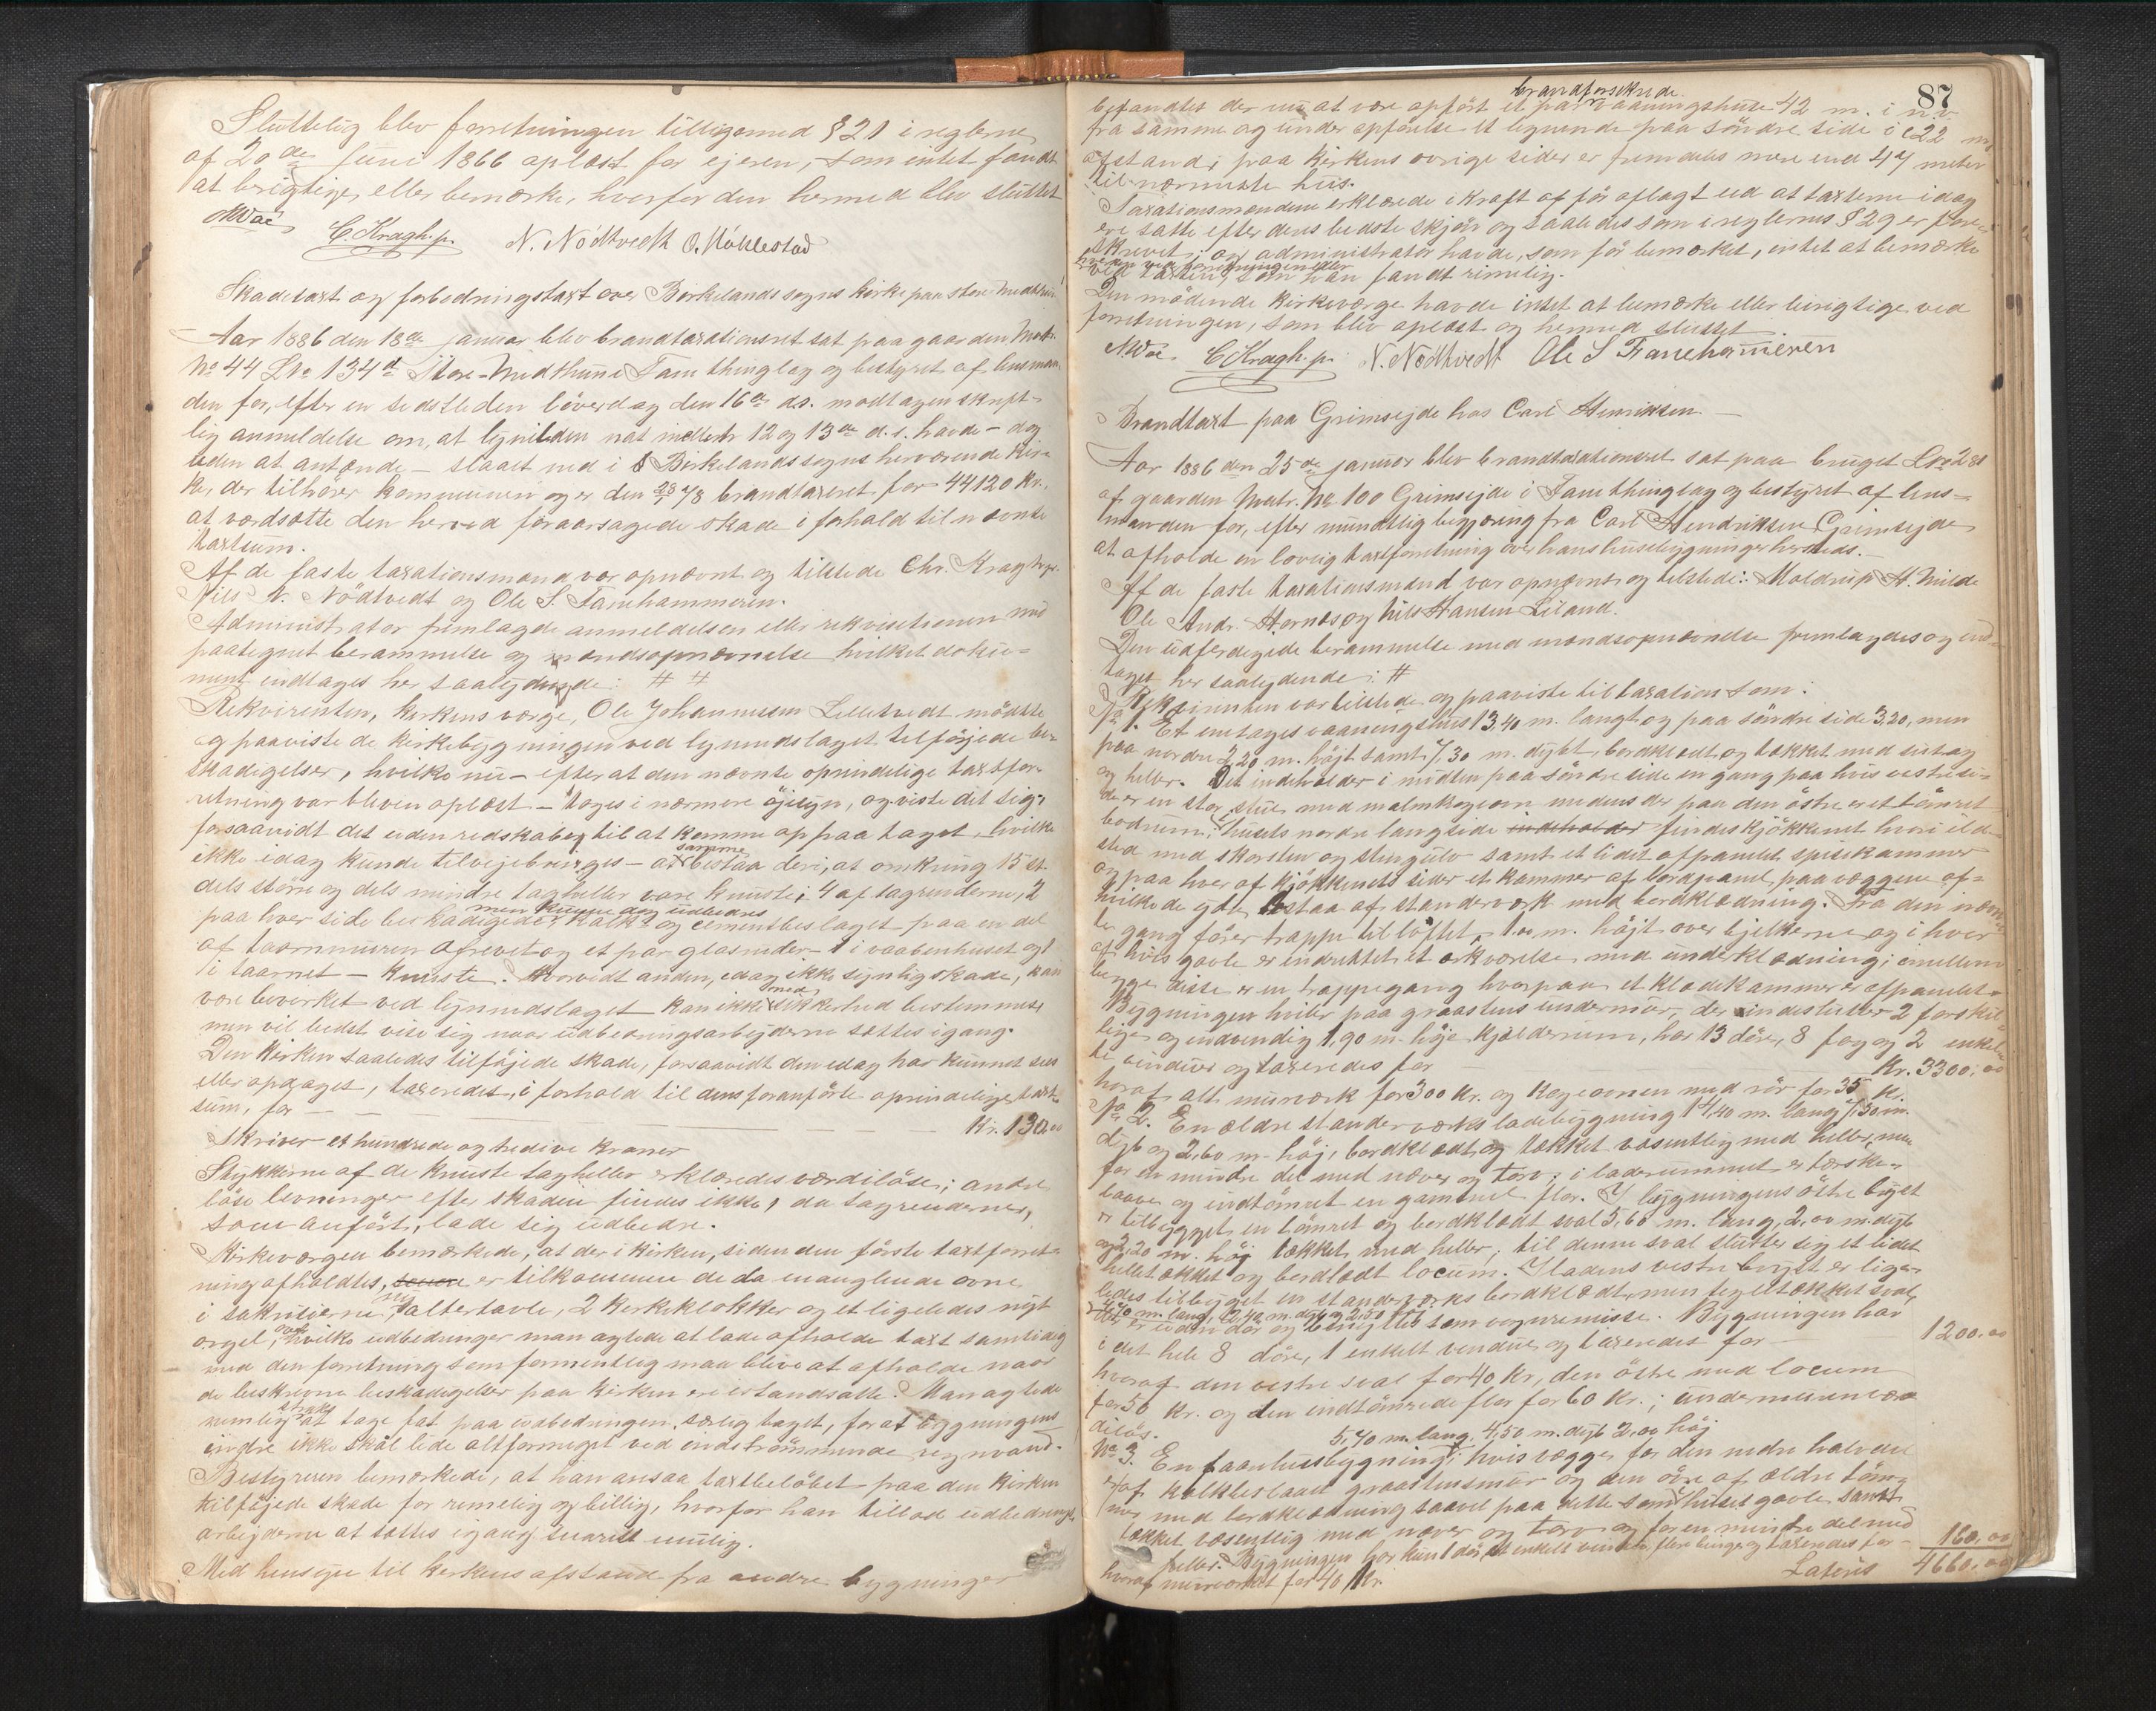 Sluttelig blev forretningen tilligemed § 21 i reglerne
af 20de Juni 1866 oplæst for ejeren, som intet fandt
at berigtige eller bemærke, hvorfor den hermed blev sluttet
C. Kragh. p. N. Nödtvedt O. Röhlestad
Skadetaxt og forbedringstaxt over Birkelands sogns kirke paa store Midthun
Aar 1886 den 18de januar blev brandtaxationsret sat paa gaarden Matr.
No 44 LNo 134d Store-Midthun i Fane thinglag og bestyret af lensman-
den for, efter en sidstleden löverdag den 16de ds. modtagen skrift-
lig anmeldelse om, at lynilden nat mellem 12 og 13de d.s. havde – dog
uden at antænde – slaaet ned i Birkelands sogns herværende kir-
ke, der tilhörer kommunen og er den 28/7 78 brandtaxeret for 44120 Kr.,
at værdsætte den herved foraarsagede skade i forhold til nævnte
taxtsum.
Af de faste taxationsmænd var opnævnt og tilstede Chr. Kragh
Nils N. Nödtvedt og Ole S. Fanehammeren.
Administrator fremlagde anmeldelsen eller rekvisitionen med
paategnet berammelse og mændsopnævnelse hvilket doku-
ment indtages her saalydende: # #
Rekvirenten, kirkens værge, Ole Johannesen Lilletvedt mödte
og paaviste de kirkebygningen ved lynnedslaget tilföjede be-
skadigelser, hvilke nu – efter at den nævnte oprindelige taxtfor-
retning var bleven oplæst – toges i nærmere öjesyn, og viste det sig,
forsaavidt det uden redskaber til at komme op paa taget, hvilke
ikke idag kunde tilvejebringes – at samme bestaa deri, at omkring 15 st.
dels större og dels mindre tagheller vare knuste; 4 af tagrenderne, 2
paa hver side beskadigede, men kunne dog udbedres kalk- og cementbeslaget paa en del
af taarnmuren afrevet og et par glasruder – 1 i vaabenhuset og 1
i taarnet – knuste. Hvorvidt anden, idag ikke synlig skade, kan
være bevirket ved lynnedslaget kan ikke med sikkerhed bestemmes
men vil bedst vise sig naar udbedringsarbejderne sættes igang.
Den kirken saaledes tilföjede skade, forsaavidt den idag har kunnet sees
eller opdages, taxeredes, i forhold til dens foranförte oprindelige taxt-
sum, for — — Kr. 130.00
Skriver et hundrede og tredive kroner
Stykkerne af de knuste tagheller erklæredes værdilöse; andre
löse levninger efter skaden findes ikke, da tagrenderne,
som anfört, lade sig udbedre.
Kirkeværgen bemærkede, at der i kirken, siden den förste taxtforret-
ning afholdtes, er tilkommen de da manglende ovne
i sakristierne, ny altertavle, 2 kirkeklokker og et ligeledes nyt
orgel, over hvilke udbedringer man agtede at lade afholde taxt samtidig
med den forretning som formentlig maa blive at afholde naar
de beskrevne beskadigelser paa kirken ere istandsatte. Man agtede
nemlig straks at tage fat paa udbedringen, særlig taget, for at bygningens
indre ikke skal lide altformeget ved indströmmende regnvand.
Bestyreren bemærkede, at han ansaa taxtbelöbet paa den kirken
tilföjede skade for rimelig og billig, hvorfor han tillod udbedrings-
arbejderne at sættes igang snarest mulig.
Med hensyn til kirkens afstand fra andre bygninger
87
befandtes der nu at være opfört et par brandforsikrede vaaningshuse 42 m. i n.v.
fra samme og under opförelse et lignende paa söndre side i 22 m.
afstand; paa kirkens övrige sider er fremdeles mere end 47 meter
til nærmeste hus.
Taxationsmændene erklærede i kraft af för aflagt ed at taxterne idag
ere satte efter dens bedste skjön og saaledes som i reglernes § 29 er fore-
skrevet; og administrator havde, som för bemærket, intet at bemærke
hverken ved forretningen eller
ved taxten, som han fandt rimelig.
Den mödende kirkeværge havde intet at bemærke eller berigtige ved
forretningen, som blev oplæst og hermed sluttet
C. Kragh. p. N. Nödtvedt Ole S Fanehammeren
Brandtaxt paa Grimsejde hos Carl Henriksen. —
Aar 1886 den 25de januar blev brandtaxationsret sat paa bruget LNo 281
af gaarden Matr. No 100 Grimsejde i Fane thinglag og bestyret af lens-
manden for, efter mundtlig begjæring fra Carl Hendriksen Grimsejde
at afholde en lovlig taxtforretning over hans husebygninger hersteds. —
Af de faste taxationsmænd var opnævnt og tilstede: Moldrup H. Milde
Ole Andr. Hernæs og Nils Hansen Liland.
Den udfærdigede berammelse med mændsopnævnelse fremlagdes og ind-
tages her saalydende: #
Rekvirenten var tilstede og paaviste til taxation som:
No 1. Et enetages vaaningshus 13,40 m. langt og paa söndre side 3,20, men
paa nordre 2,20 m. höjt samt 7,30 m. dybt, bordklædt og tækket med
og heller. Det indeholder i midten paa söndre side en gang paa hvis vestre si-
de er en stor stue med malmkogeovn medens der paa den östre er et tömret
bodrum; i husets nordre langside indeholder findes kjökkenet hvori ild-
sted med skorsten og stengulv samt et lidet afpanelet spisekammer
og paa hver af kjökkenets sider et kammer af bordpanel paa væggene af
hvilke de ydre bestaa af standerværk med bordklædning. Fra den nævn-
te gang förer trappe til löftet, 1.00 m. höjt over bjelkerne og i hver
af hvis gavle er indrettet et arkværelse med underklædning; imellem
begge disse er en trappegang hvorpaa et klædekammer er afpanelet.
Bygningen hviler paa graastens undermur, der indeslutter 2 forskjel-
lige og indvendig 1,90 m. höje kjælderrum, har 13 döre, 8 fag og 2 enkel-
te vinduer og taxeredes for — Kr. 3300.00
hvoraf alt murværk for 300 kr. og kogeovnen med rör for 35 Kr.
No 2. En ældre standerværks ladebygning 14,40 m. lang 7,30 m.
dyb og 2,60 m. höj, bordklædt og tækket væsentlig med heller, men
for en mindre del med næver og torv; i laderummet er tærske-
laave og indtömret en gammel flor. I bygningens östre bryst
er tilbygget en tömret og bordklædt sval 5,60 m. lang, 2,00 m. dyb
og 2,20 m. höj tækket med heller; til denne sval slutter sig et lidet
helletækket og bordklædt locum. I ladens vestre bryst er lige-
ledes tilbygget en standerværks bordklædt, men tegltækket sval,
7,70 m. lang, 2,40 m. dyb og 2,50 höj
der er uden dör og benyttes som vognremisse. Bygningen har
i det hele 8 döre, 1 enkelt vindue og taxeredes for — 1200.00
hvoraf den vestre sval for 40 Kr, den östre med locum
for 50 Kr. og den indtömrede flor for 60 Kr.; undermuren vær-
dilös.
5,40 m. lang, 4,50 m. dyb 2,00 höj
No 3. En faarehusbygning, hvis vægge for den nedre halvdel
er af kalkbeslaaet graastensmur og den övre af ældre töm-
mer med bordklædning saavel paa dette som i huset gavle samt
tækket væsentlig med næver og torv og for en mindre del med
heller. Bygningen har kun 1 dör, et enkelt vindue, flere binge og taxeredes for — 160.00
hvoraf murværket for 40 Kr.
Lateris 4660.00